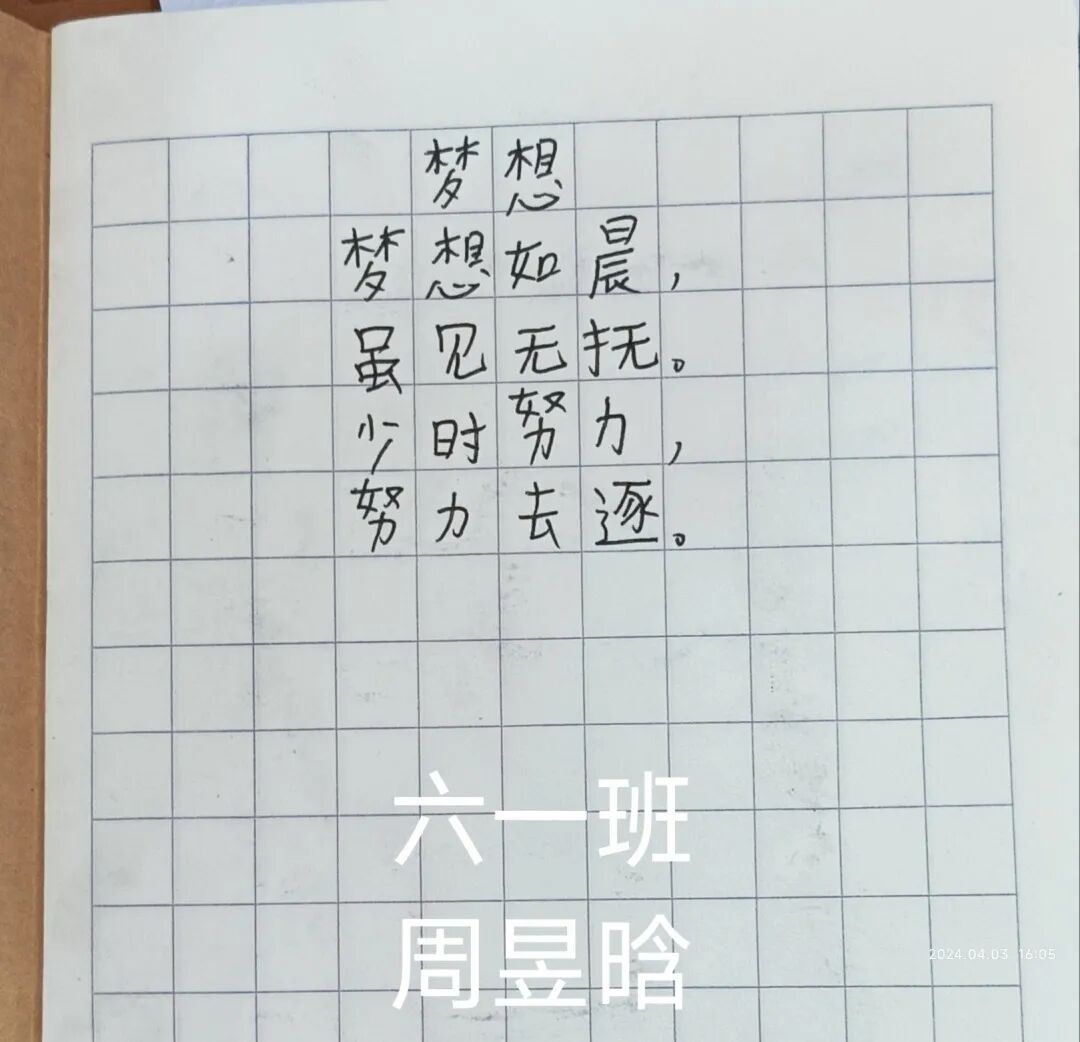 梦想
梦想如晨,
虽见无抚。
少时努力,
努力去逐。
六一班
周昱晗
2024.04.03 16:05